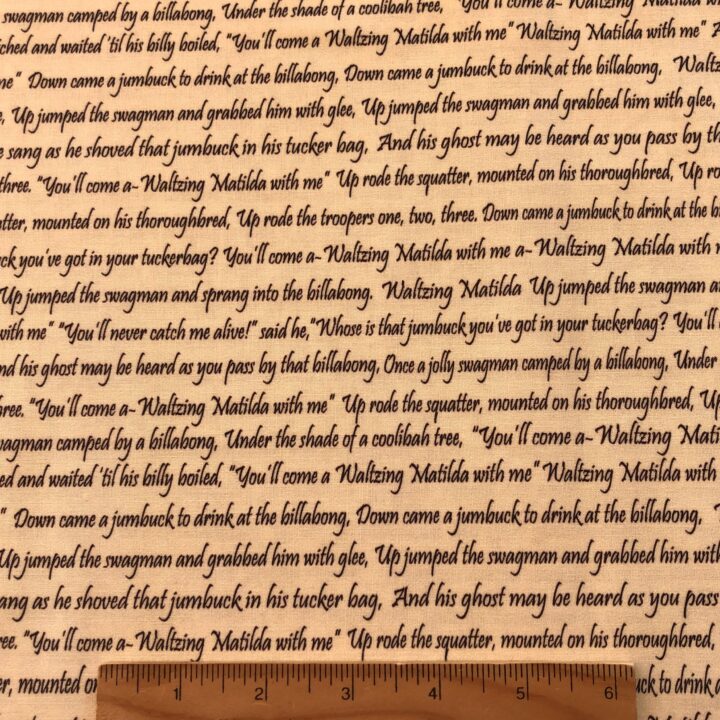 swagman camped by a billabong, Under the shade of a coolibah tree, "You'll come a~ Waltzing Matilda
ched and waited 'til his billy boiled, "You'll come a Waltzing Matilda with me" Waltzing Matilda with me"
me" Down came a jumbuck to drink at the billabong, Down came a jumbuck to drink at the billabong, Waltz
, Up jumped the swagman and grabbed him with glee, Up jumped the swagman and grabbed him with glee,
e sang as he shoved that jumbuck in his tucker bag, And his ghost may be heard as you pass by th
three. "You'll come a~Waltzing Matilda with me" Up rode the squatter, mounted on his thoroughbred, Up ro
tter, mounted on his thoroughbred, Up rode the troopers one, two, three. Down came a jumbuck to drink at the b
ck you've got in your tuckerbag? You'll come a~Waltzing Matilda with me a~Waltzing Matilda with
Up jumped the swagman and sprang into the billabong. Waltzing Matilda Up jumped the swagman a
with me" "You'll never catch me alive!" said he, "Whose is that jumbuck you've got in your tuckerbag? You'll
nd his ghost may be heard as you pass by that billabong, Once a jolly swagman camped by a billabong, Under
ree. "You'll come a~Waltzing Matilda with me" Up rode the squatter, mounted on his thoroughbred, Up
wagman camped by a billabong, Under the shade of a coolibah tree, "You'll come a~Waltzing Mati
ed and waited 'til his billy boiled, "You'll come a Waltzing Matilda with me" Waltzing Matilda with
" Down came a jumbuck to drink at the billabong, Down came a jumbuck to drink at the billabong,
Up jumped the swagman and grabbed him with glee, Up jumped the swagman and grabbed him with
ang as he shoved that jumbuck in his tucker bag, And his ghost may be heard as you pass
ree. "You'll come a~Waltzing Matilda with me" Up rode the squatter, mounted on his thoroughbred,
r, mounted on uck to drink a
1 2 3 4 5 6